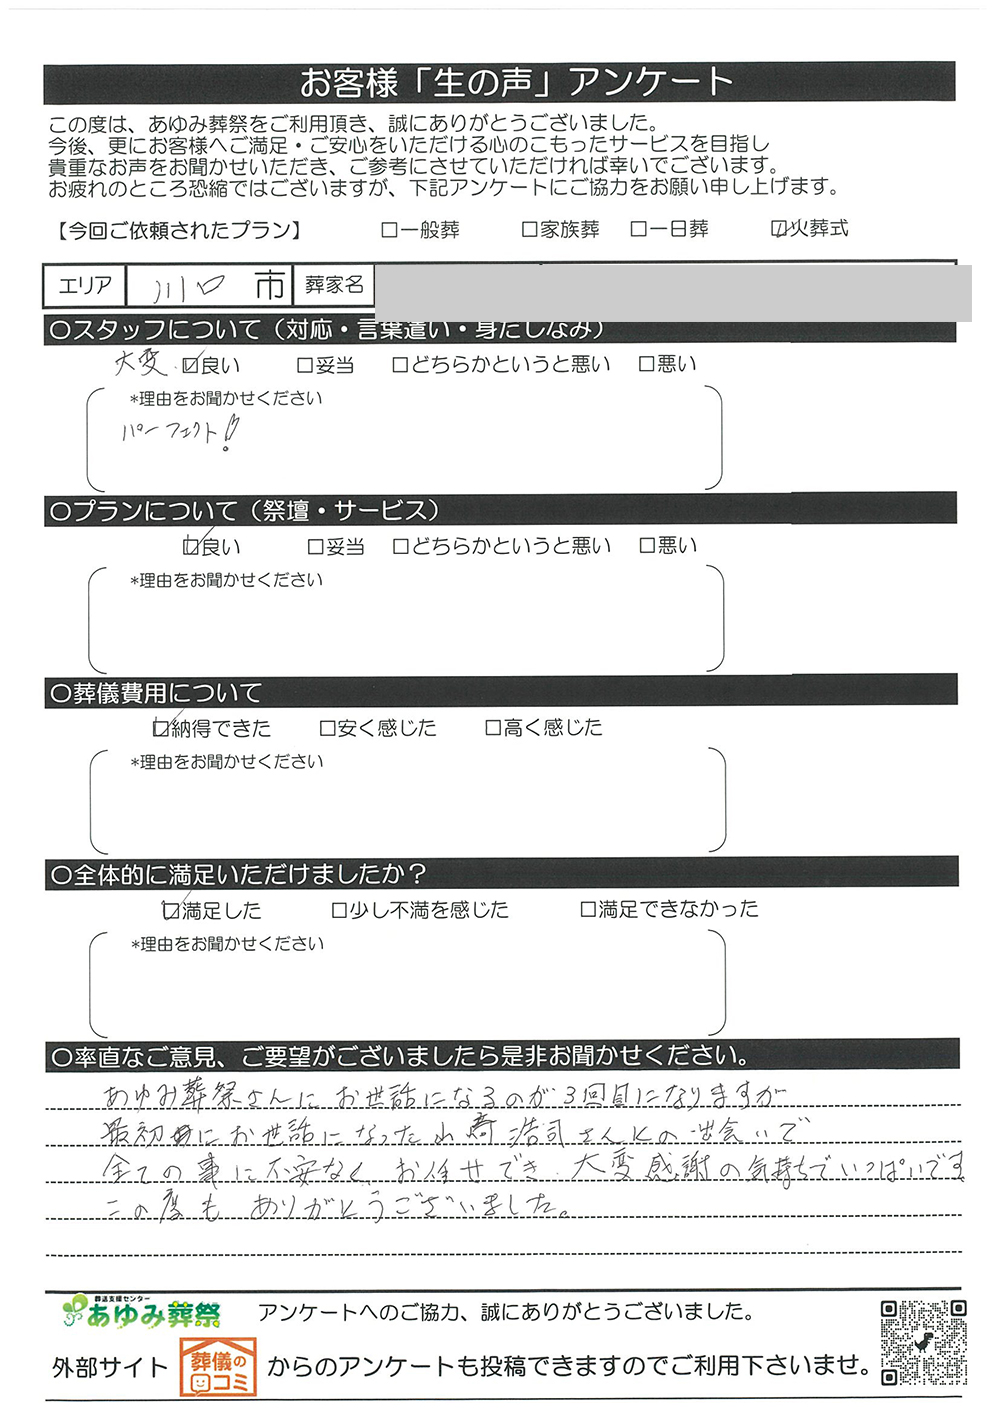 お客様「生の声」アンケート
この度は、あゆみ葬祭をご利用頂き、誠にありがとうございました。
今後、更にお客様へご満足・ご安心をいただける心のこもったサービスを目指し
貴重なお声をお聞かせいただき、ご参考にさせていただければ幸いでございます。
お疲れのところ恐縮ではございますが、下記アンケートにご協力をお願い申し上げます。
【今回ご依頼されたプラン】 □一般葬 □家族葬 □一日葬 ☑火葬式
エリア 川口 市 葬家名
○スタッフについて（対応・言葉遣い・身だしなみ）
大変 ☑良い □妥当 □どちらかというと悪い □悪い
*理由をお聞かせください
パーフェクト!
○プランについて（祭壇・サービス）
☑良い □妥当 □どちらかというと悪い □悪い
*理由をお聞かせください
○葬儀費用について
☑納得できた □安く感じた □高く感じた
*理由をお聞かせください
○全体的に満足いただけましたか？
☑満足した □少し不満を感じた □満足できなかった
*理由をお聞かせください
○率直なご意見、ご要望がございましたら是非お聞かせください。
あゆみ葬祭さんに お世話になるのが3回目になりますが
最初にお世話になった山崎浩司さんとの出会いで
全ての事に不安なく、お任せでき、大変感謝の気持ちでいっぱいです
この度も ありがとうございました。
葬送支援センター
あゆみ葬祭 アンケートへのご協力、誠にありがとうございました。
外部サイト 葬儀の口コミ からのアンケートも投稿できますのでご利用下さいませ。